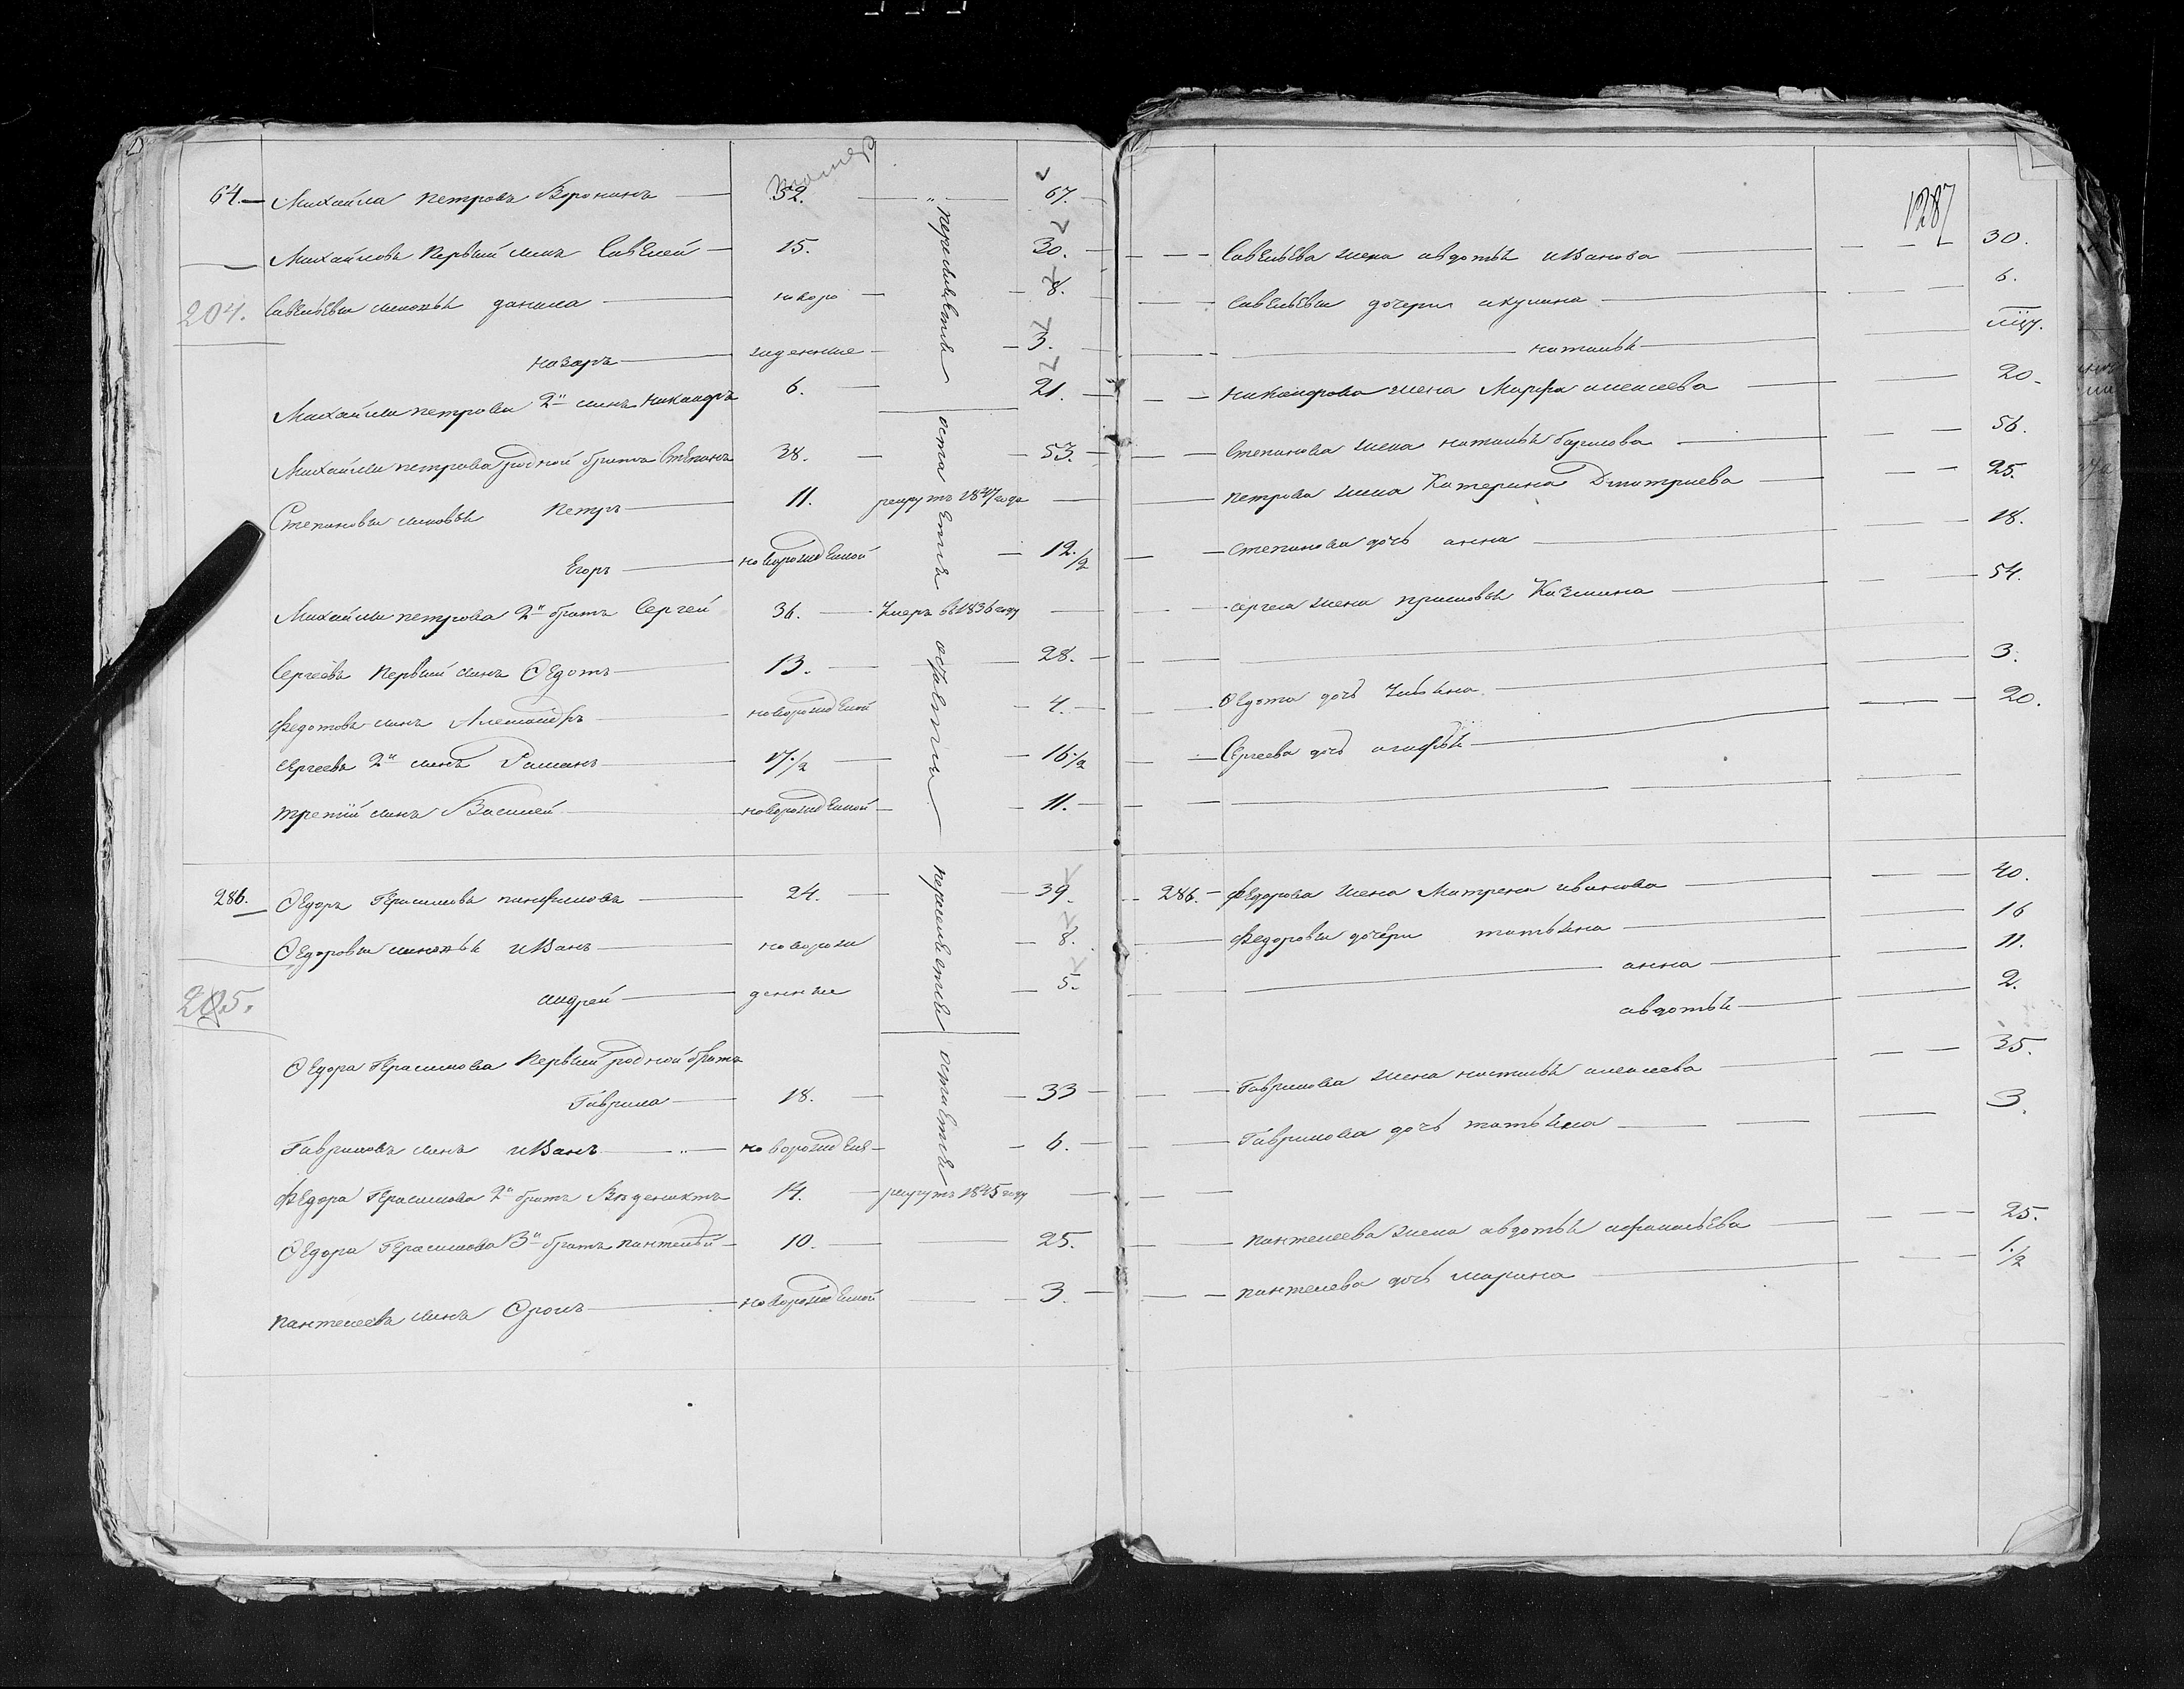 64. Михайла петровъ Воронинъ 52. 67.
Михайловъ первый сынъ Савелей 15. 30.
204. Савельевы сыновьи данила новоро 8.
назаръ жденные 3.
Михайлы петрова 2й сынъ никандръ 6. 21.
Михайлы петрова родной братъ Степанъ 38. 53.
Степановы сыновьи Петръ 11. рекрутъ 1847 года
Егоръ новорожденой 12 1/2
Михайлы петрова 2й братъ Сергей 36. Умеръ въ 1836 году
Сергеевъ первый сынъ Ѳедотъ 13. 28.
Федотовъ сынъ Александръ новорожденой 4.
Сергеевъ 2й сынъ Романъ 17. 1/2 16. 1/2
третий сынъ Василей новорожденой 11.
переселяетца
остаетца
остаетца
286. Ѳедоръ Герасимовъ панфиловъ 24. 39.
Ѳедоровы сыновьи иванъ новорож 8.
205. андрей денные 5.
Ѳедора Герасимова первый родной братъ
Гаврила 18. 33
Гавриловъ сынъ иванъ новорожден 6.
Федора Герасимова 2й братъ 14. рекрутъ 1845 году
Ѳедора Герасимова 3й братъ пантелей 10. 25.
пантелеевъ сынъ новорожденой 3.
переселяетца
остаетца
1287
Савельева жена авдотьи иванова 30.
савельевы дочери акулина 6.
наталья
никандрова жена Марфа алексеева 20.
степанова жена наталья 56.
петрова жена Катерина Дмитриева 25.
степанова дочь анна 18.
сергея жена Казмина 54.
Ѳедота дочь 3.
Сергеева дочь агафья 20.
286. Федорова жена Матрена иванова 40.
Федоровы дочери татьяна 16
анна 11.
авдотьи 2.
Гаврилова жена алексеева 35.
Гаврилова дочь татьяна 3.
пантелеева жена авдотьи афанасьева 25.
пантелеева дочь марина 1. 1/2